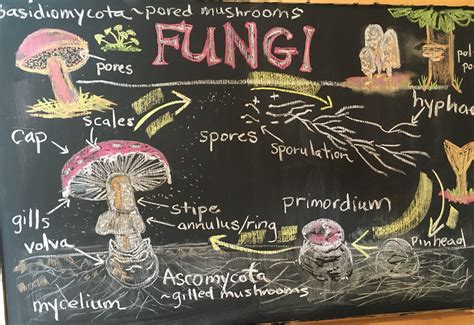 Basidiomycota ~pored mushrooms
FUNGI
pores
scales
cap
spores
sporulation
hyphae
gills
volva
stipe
annulus/ring
primordium
Pinhead
mycelium
Ascomycota
~gilled mushrooms